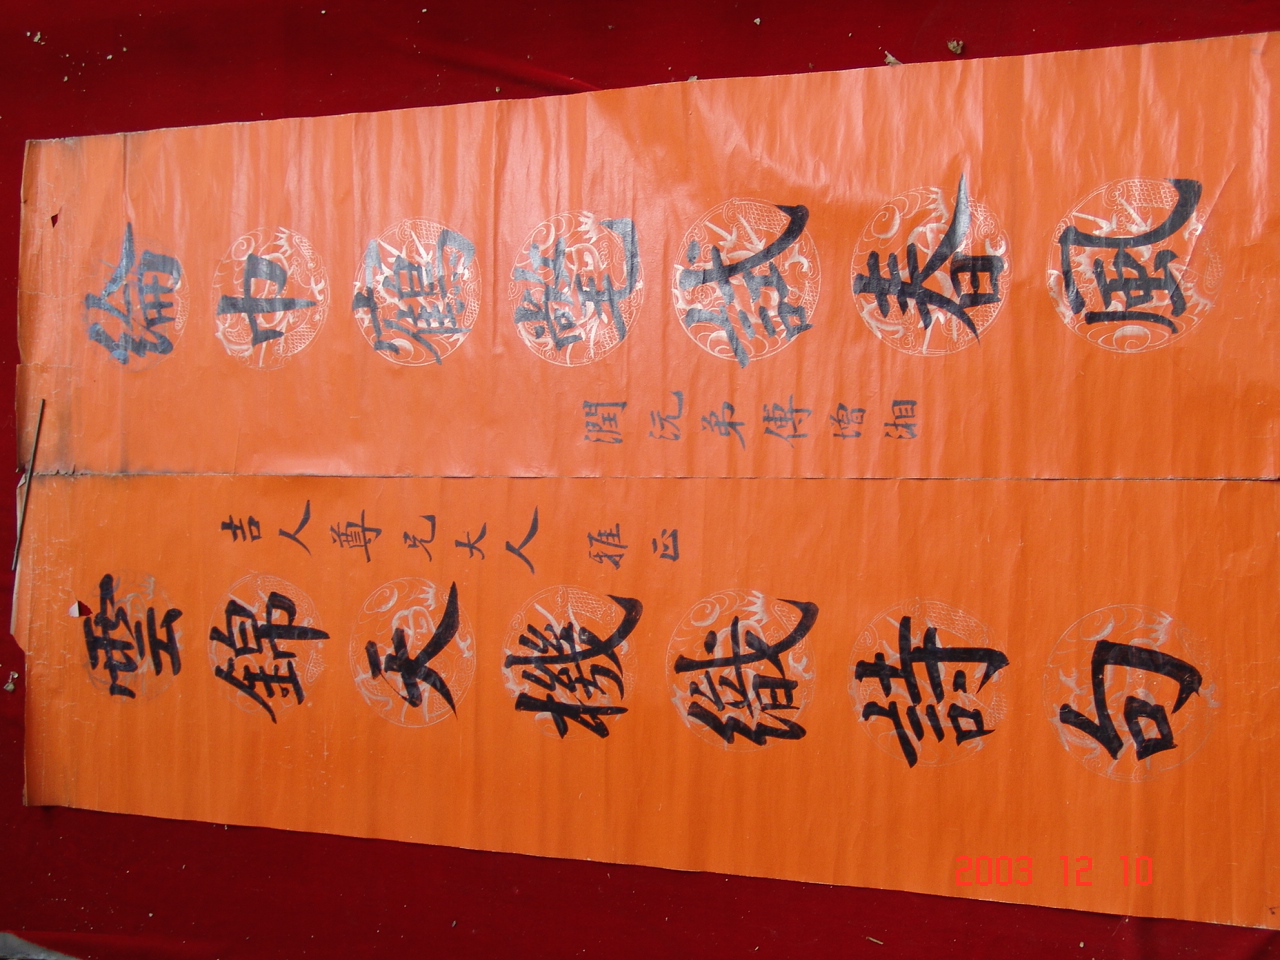 綸巾鶴氅試春風
潤沅弟傅增湘
吉人尊兄大人雅正
雲錦天機織詩句
2003 12 10